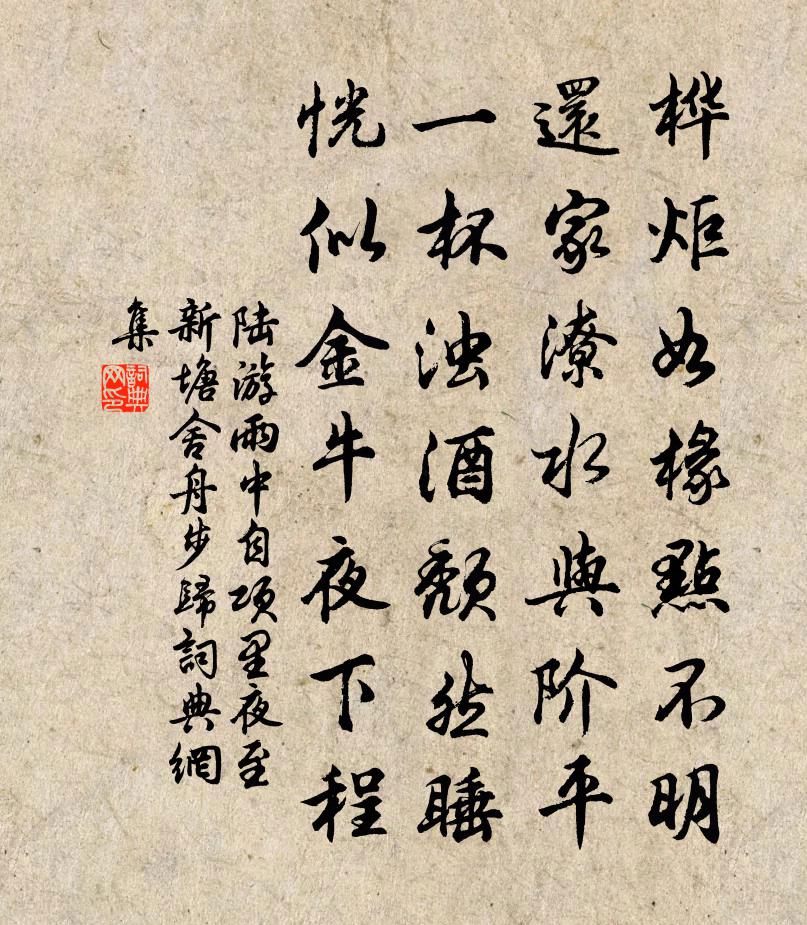 桦炬如椽點不明
還家潦水與阶平
一杯浊酒颓然睡
恍似金牛夜下程
陆游雨中自项里夜至
新塘舍舟步歸詞典網
集
詞典
网印